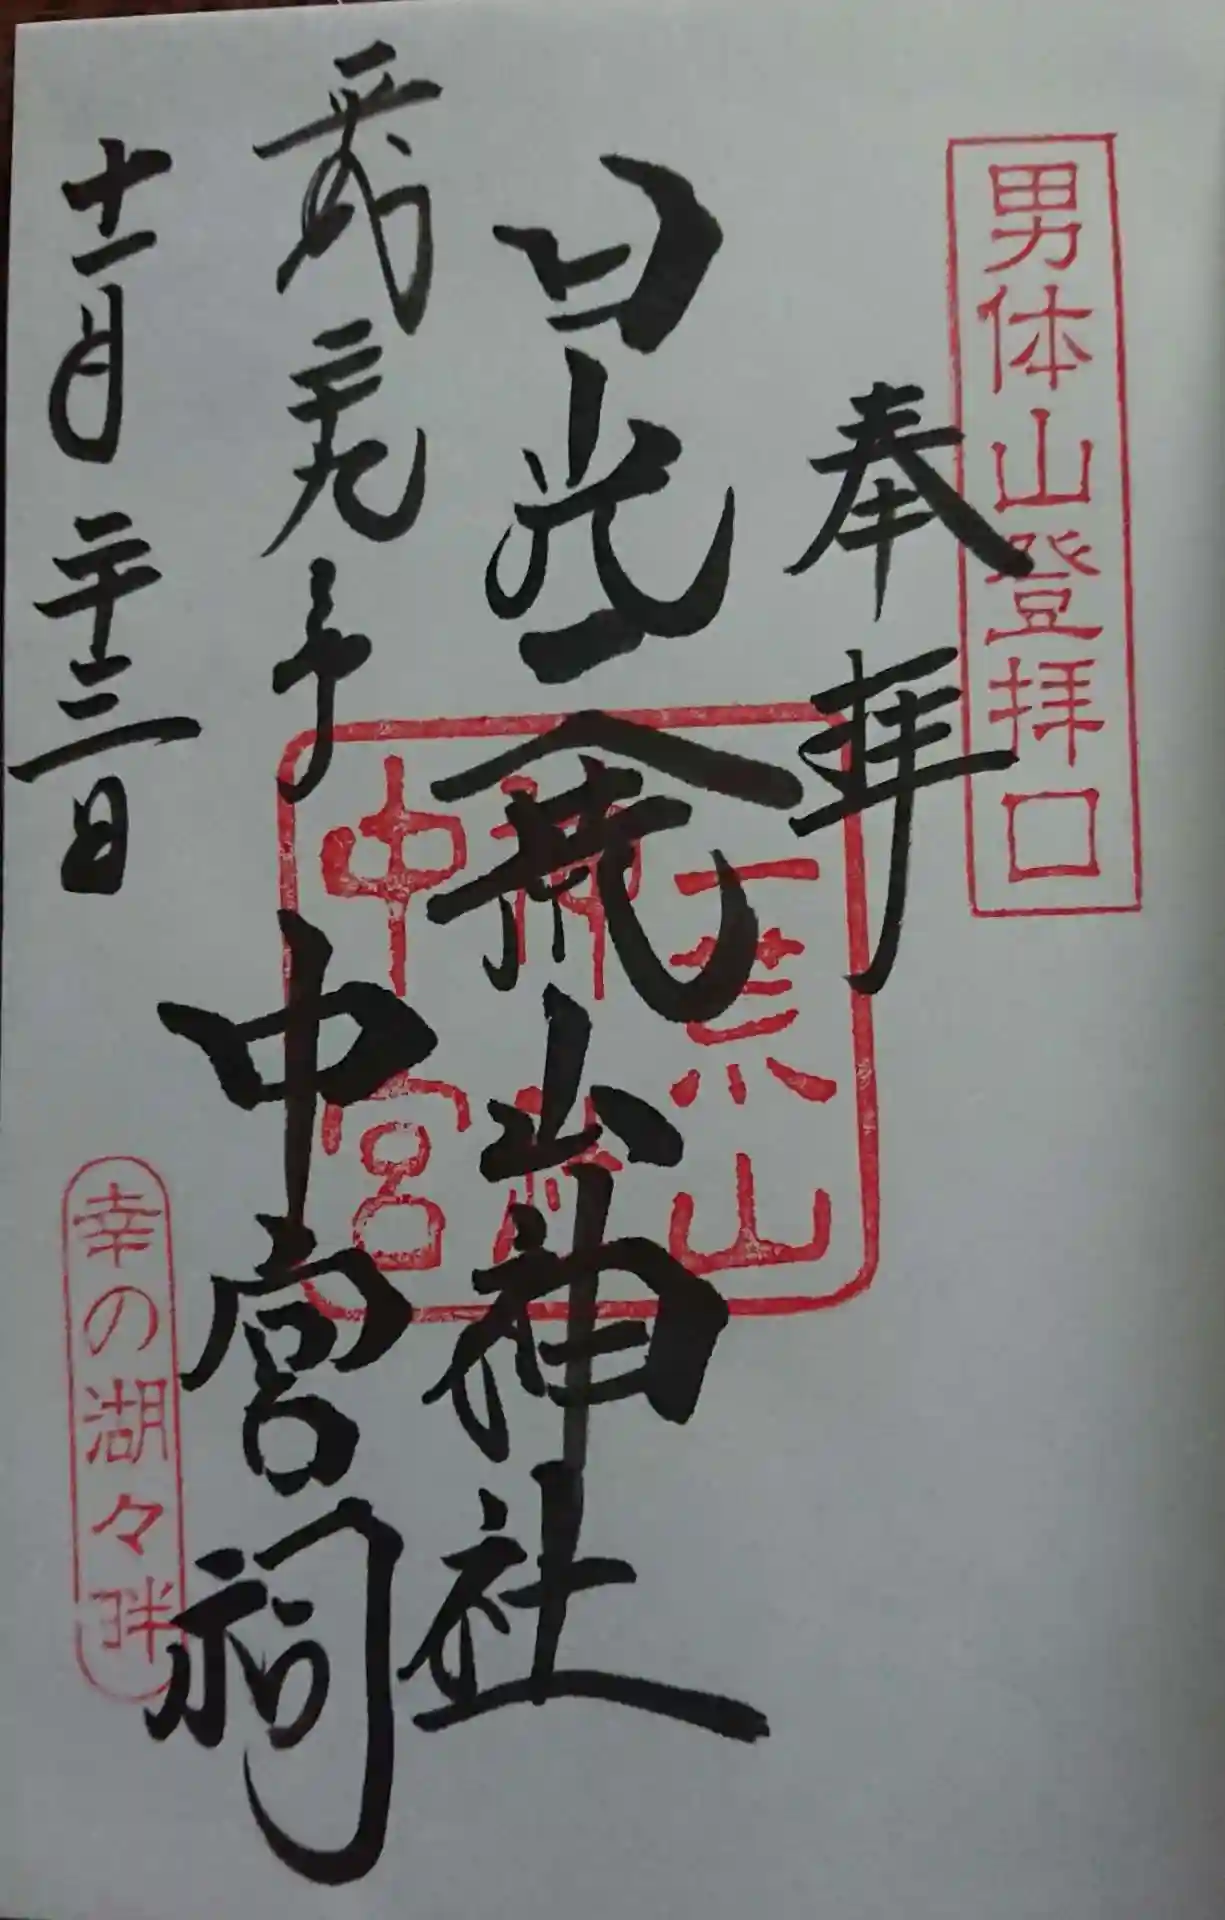 男体山登拝口
奉拝
日光二荒山神社
中宮祠
平成二十九年
十一月二十三日
二荒山
神社
中宮
幸の湖々畔